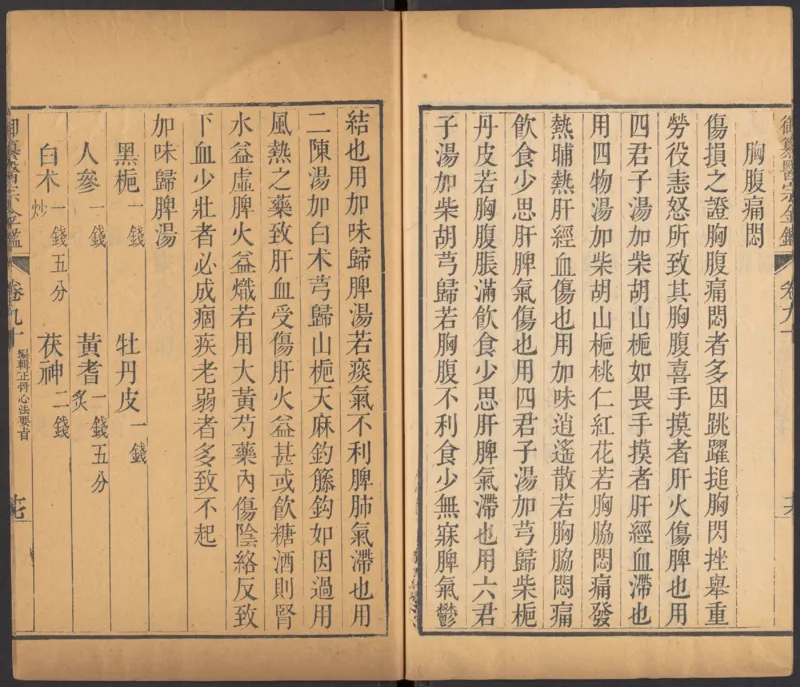 御纂醫宗金鑑
胸腹痛悶
傷損之證胸腹痛悶者多因跳躍搥胸閃挫舉重
勞役恚怒所致其胸腹喜手摸者肝火傷脾也用
四君子湯加柴胡山梔如畏手摸者肝經血滯也
用四物湯加柴胡山梔桃仁紅花若胸脇悶痛發
熱晡熱肝經血傷也用加味逍遙散若胸脇悶痛
飲食少思肝脾氣傷也用四君子湯加芎歸柴梔
丹皮若胸腹脹滿飲食少思肝脾氣滯也用六君
子湯加柴胡芎歸若胸腹不利食少無寐脾氣鬱
結也用加味歸脾湯若痰氣不利脾肺氣滯也用
二陳湯加白朮芎歸山梔天麻釣籐鈎如因過用
風熱之藥致肝血受傷肝火益甚或飲糖酒則腎
水益虛脾火益熾若用大黃芍藥內傷陰絡反致
下血少壯者必成痼疾老弱者多致不起
加味歸脾湯
黑梔一錢 牡丹皮一錢
人參一錢 黃耆炙一錢五分
白朮炒一錢五分 茯神二錢
御纂醫宗金鑑 卷九十 編輯正骨心法要旨 十七